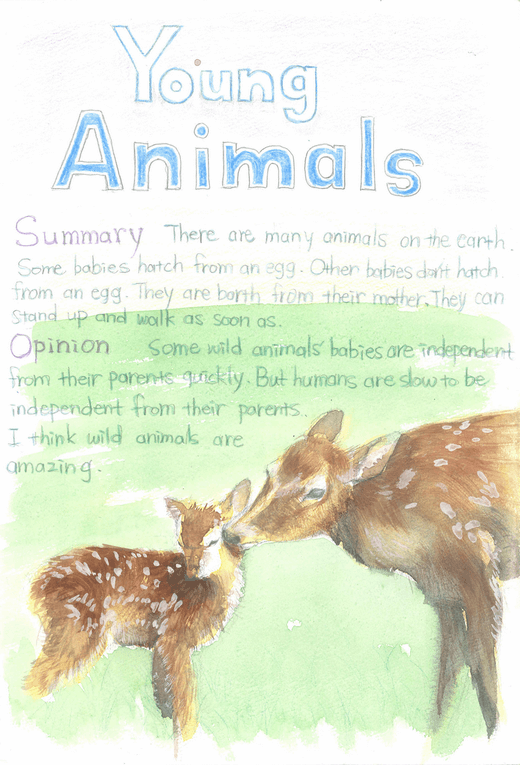 Young
Animals
Summary There are many animals on the earth.
Some babies hatch from an egg. Other babies don't hatch
from an egg. They are borth from their mother. They can
stand up and walk as soon as.
Opinion Some wild animals' babies are independent
from their parents quickly. But humans are slow to be
independent from their parents.
I think wild animals are
amazing.